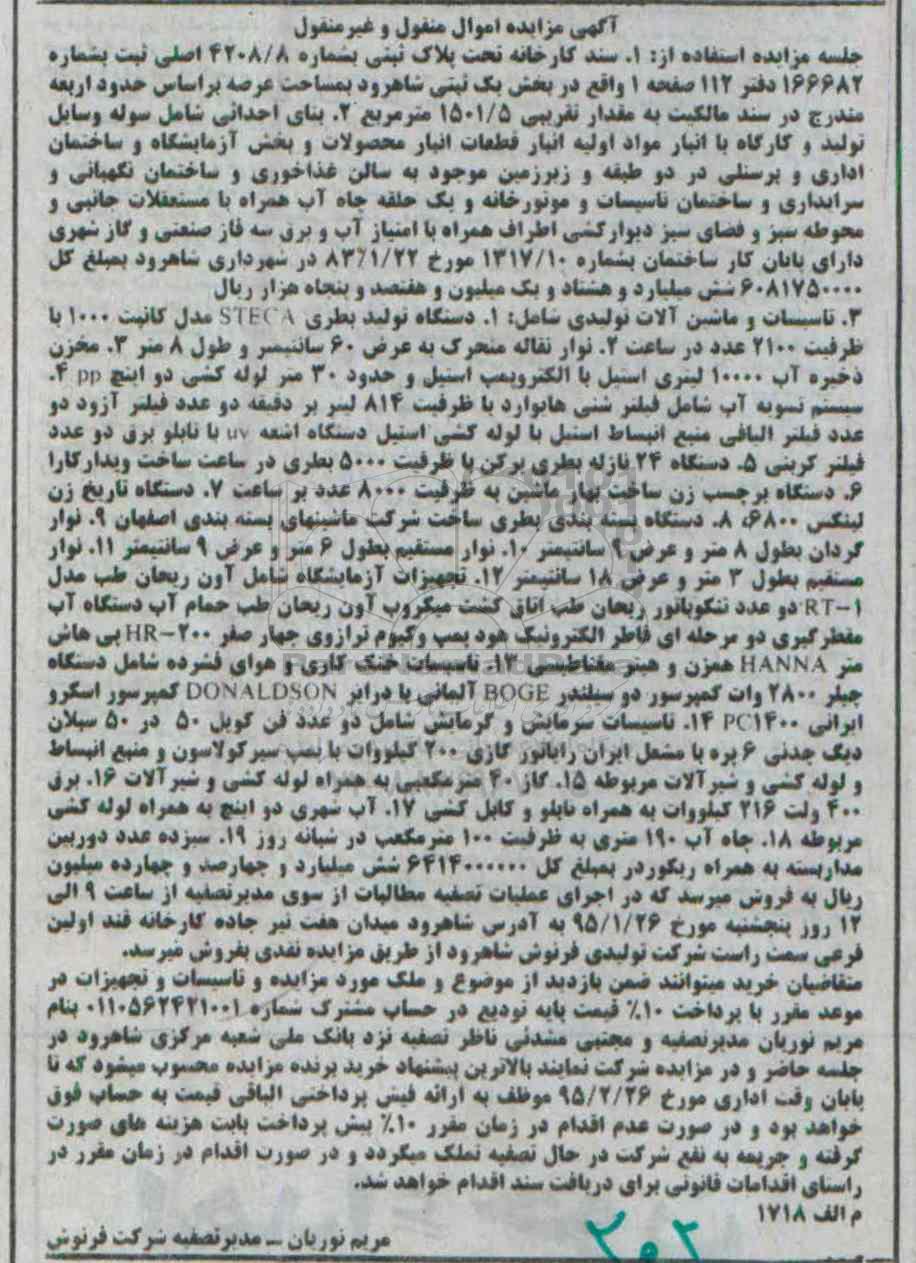 آگهی مزایده اموال منقول و غیرمنقول
جلسه مزایده استفاده از: ۱. سند کارخانه تحت پلاک ثبتی بشماره ۴۲۰۸/۸ اصلی ثبت بشماره
۱۶۶۶۸۲ دفتر ۱۱۲ صفحه ۱ واقع در بخش یک ثبتی شاهرود بمساحت عرصه براساس حدود اربعه
مندرج در سند مالکیت به مقدار تقریبی ۱۵۰۱/۵ مترمربع ۲. بنای احداثی شامل سوله وسایل
تولید و کارگاه با انبار مواد اولیه انبار قطعات انبار محصولات و بخش آزمایشگاه و ساختمان
اداری و پرسنلی در دو طبقه و زیرزمین موجود به سالن غذاخوری و ساختمان نگهبانی و
سرایداری و ساختمان تاسیسات و موتورخانه و یک حلقه چاه آب همراه با مستعقلات جانبی و
محوطه سبز و فضای سبز دیوارکشی اطراف همراه با امتیاز آب و برق سه فاز صنعتی و گاز شهری
دارای پایان کار ساختمان بشماره ۱۳۱۷/۱۰ مورخ ۸۳/۱/۲۲ در شهرداری شاهرود بمبلغ کل
۶۰۸۱۷۵۰۰۰۰ شش میلیارد و هشتاد و یک میلیون و هفتصد و پنجاه هزار ریال
۳. تاسیسات و ماشین آلات تولیدی شامل: ۱. دستگاه تولید بطری STECA مدل کانیت ۱۰۰۰ با
ظرفیت ۲۱۰۰ عدد در ساعت ۲. نوار نقاله متحرک به عرض ۶۰ سانتیمتر و طول ۸ متر ۳. مخزن
ذخیره آب ۱۰۰۰۰ لیتری استیل با الکتروپمپ استیل و حدود ۳۰ متر لوله کشی دو اینچ pp ۴.
سیستم تسویه آب شامل فیلتر شنی هایوارد با ظرفیت ۸۱۴ لیتر بر دقیقه دو عدد فیلتر آزود دو
عدد فیلتر الیافی منبع انبساط استیل با لوله کشی استیل دستگاه اشعه uv با تابلو برق دو عدد
فیلتر کربنی ۵. دستگاه ۲۴ نازله بطری پرکن با ظرفیت ۵۰۰۰ بطری در ساعت ساخت ویدارکارا
۶. دستگاه برچسب زن ساخت بهار ماشین به ظرفیت ۸۰۰۰ عدد بر ساعت ۷. دستگاه تاریخ زن
لینکس ۶۸۰۰، ۸. دستگاه بسته بندی بطری ساخت شرکت ماشینهای بسته بندی اصفهان ۹. نوار
گردان بطول ۸ متر و عرض ۹ سانتیمتر ۱۰. نوار مستقیم بطول ۶ متر و عرض ۹ سانتیمتر ۱۱. نوار
مستقیم بطول ۳ متر و عرض ۱۸ سانتیمتر ۱۲. تجهیزات آزمایشگاه شامل آون ریحان طب مدل
RT-۱ دو عدد انکوباتور ریحان طب اتاق کشت میکروب آون ریحان طب حمام آب دستگاه آب
مقطرگیری دو مرحله ای فاطر الکترونیک هود پمپ وکیوم ترازوی چهار صفر HR-۲۰۰ پی هاش
متر HANNA همزن و هیتر مغناطیسی ۱۳. تاسیسات خنک کاری و هوای فشرده شامل دستگاه
چیلر ۲۸۰۰ وات کمپرسور دو سیلندر BOGE آلمانی با درایر DONALDSON کمپرسور اسکرو
ایرانی PC۱۴۰۰ ۱۴. تاسیسات سرمایش و گرمایش شامل دو عدد فن کویل ۵۰ در ۵۰ سبلان
دیگ چدنی ۶ پره با مشعل ایران رادیاتور گازی ۲۰۰ کیلووات با پمپ سیرکولاسون و منبع انبساط
و لوله کشی و شیرآلات مربوطه ۱۵. گاز ۴۰ مترمکعبی به همراه لوله کشی و شیرآلات ۱۶. برق
۴۰۰ ولت ۲۱۶ کیلووات به همراه تابلو و کابل کشی ۱۷. آب شهری دو اینچ به همراه لوله کشی
مربوطه ۱۸. چاه آب ۱۹۰ متری به ظرفیت ۱۰۰ مترمکعب در شبانه روز ۱۹. سیزده عدد دوربین
مداربسته به همراه ریکوردر بمبلغ کل ۶۴۱۴۰۰۰۰۰۰ شش میلیارد و چهارصد و چهارده میلیون
ریال به فروش میرسد که در اجرای عملیات تصفیه مطالبات از سوی مدیرتصفیه از ساعت ۹ الی
۱۲ روز پنجشنبه مورخ ۹۵/۱/۲۶ به آدرس شاهرود میدان هفت تیر جاده کارخانه قند اولین
فرعی سمت راست شرکت تولیدی فرنوش شاهرود از طریق مزایده نقدی بفروش میرسد.
متقاضیان خرید میتوانند ضمن بازدید از موضوع و ملک مورد مزایده و تاسیسات و تجهیزات در
موعد مقرر با پرداخت ۱۰٪ قیمت پایه تودیع در حساب مشترک شماره ۰۱۱۰۵۶۲۴۲۱۰۰۱ بنام
مریم نوریان مدیرتصفیه و مجتبی مشدئی ناظر تصفیه نزد بانک ملی شعبه مرکزی شاهرود در
جلسه حاضر و در مزایده شرکت نمایند بالاترین پیشنهاد خرید برنده مزایده محسوب میشود که تا
پایان وقت اداری مورخ ۹۵/۲/۲۶ موظف به ارائه فیش پرداختی الباقی قیمت به حساب فوق
خواهد بود و در صورت عدم اقدام در زمان مقرر ۱۰٪ پیش پرداخت بابت هزینه های صورت
گرفته و جریمه به نفع شرکت در حال تصفیه تملک میگردد و در صورت اقدام در زمان مقرر در
راستای اقدامات قانونی برای دریافت سند اقدام خواهد شد.
م الف ۱۷۱۸
مریم نوریان – مدیرتصفیه شرکت فرنوش
۳۰۲